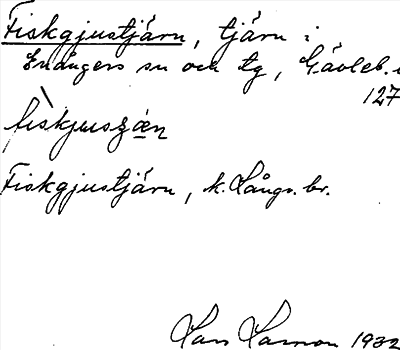 Fiskgjustjärn, tjärn i
Enångers sn och tg, Gävleb. l
127
Fiskgjustjärn, k. Långv. br.
Lars Larson 1932